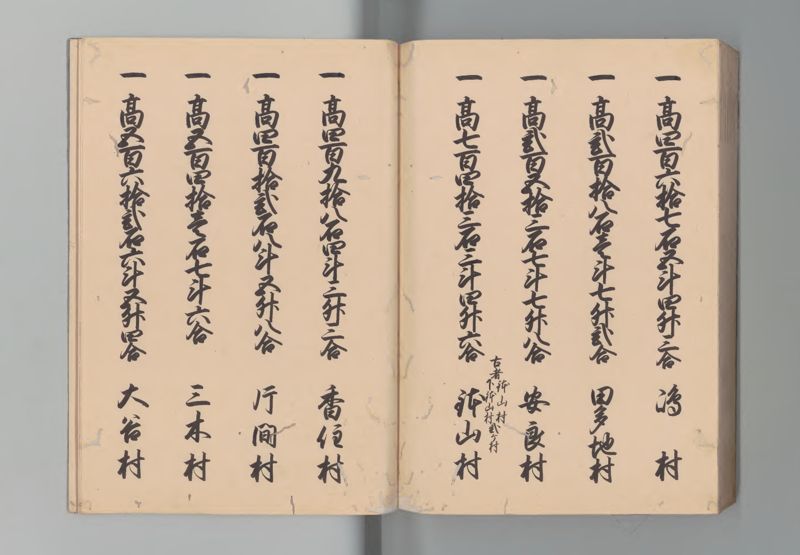 一 高四百六拾七石五斗四升三合 嶋村
一 高弐百拾八石壱斗七升弐合 田多地村
一 高弐百五拾三石七斗七升八合 安良村
一 高七百四拾三石三斗四升六合 鉢山村
古者鉢山村
下鉢山村弐ヶ村
一 高四百九拾八石四斗三升三合 香住村
一 高四百拾弐石八斗五升八合 片間村
一 高五百四拾壱石七斗六合 三木村
一 高五百六拾弐石六斗五升四合 大谷村